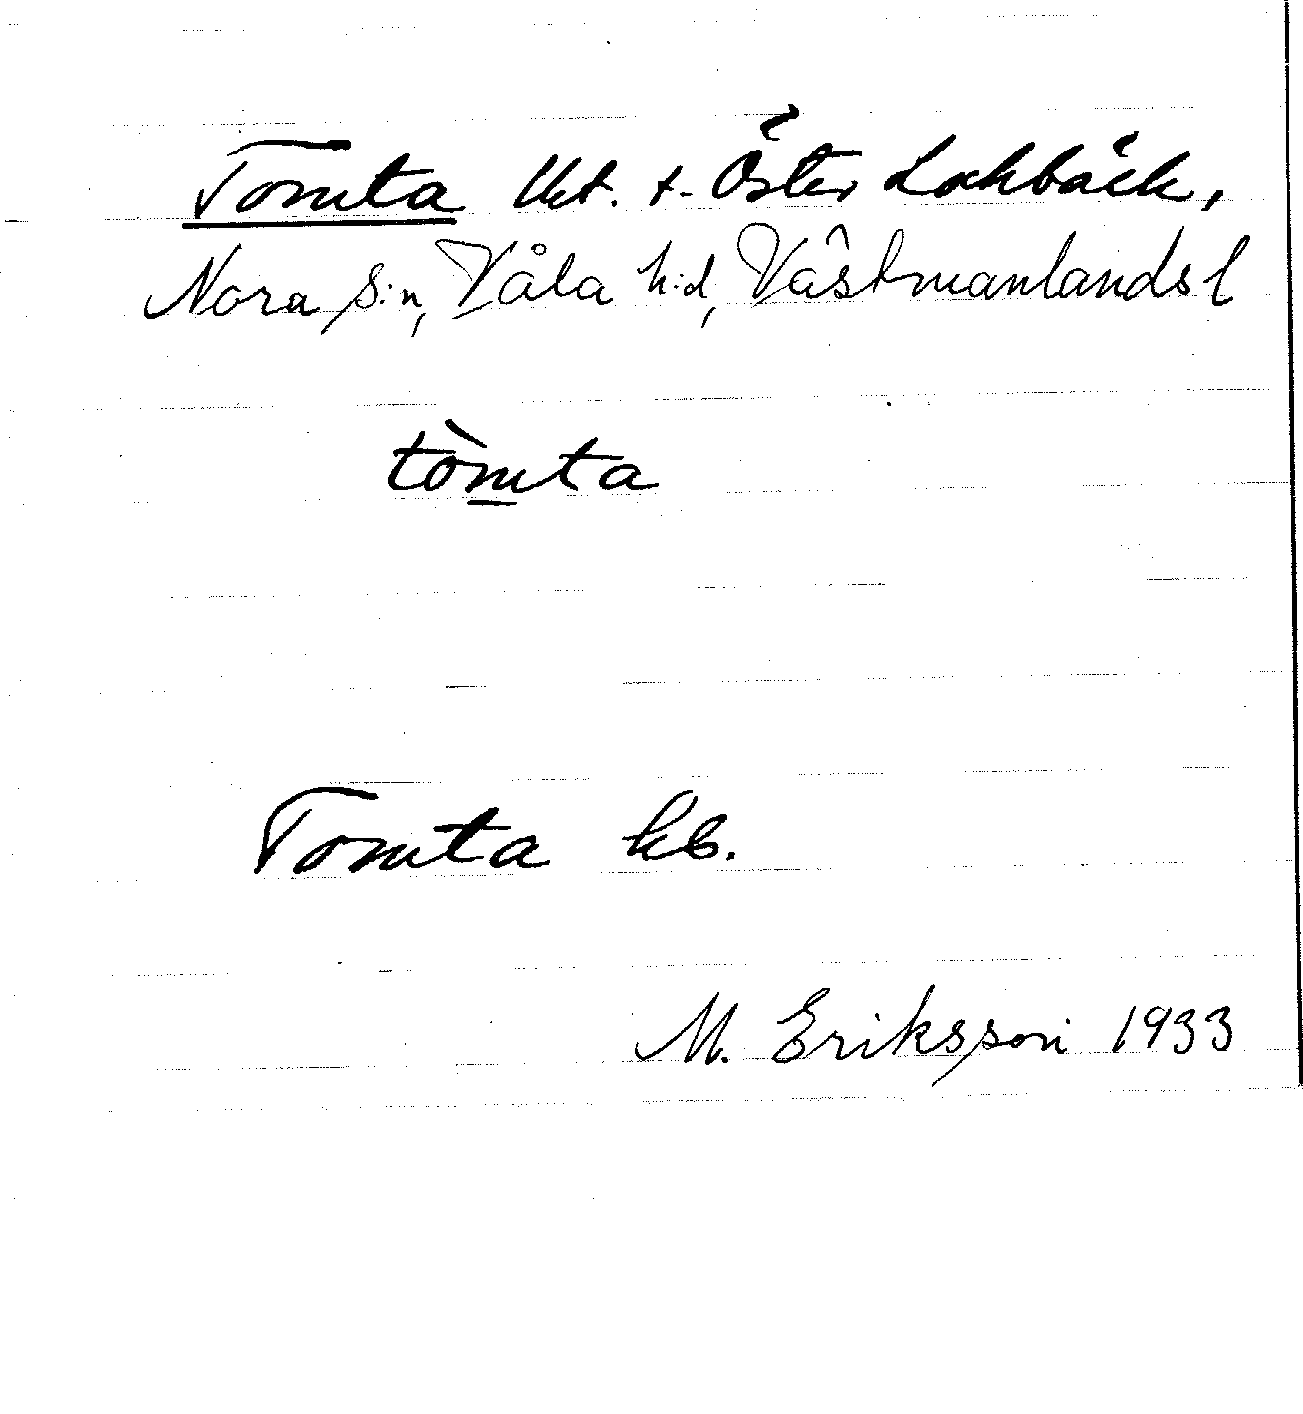 Tomta lht. t. Öster Lohbäck,
Nora s:n, Våla h:d, Västmanlands l
tòmta
Tomta kb.
M. Eriksson 1933